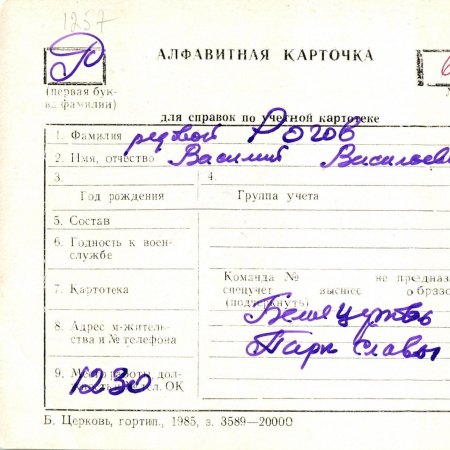 1257
Р
АЛФАВИТНАЯ КАРТОЧКА
(первая бук-
ва фамилии)
для справок по учетной картотеке
1. Фамилия рядвой Рогов
2. Имя, отчество Василий Васильеви
3.
4.
Год рождения
Группа учета
5. Состав
6. Годность к воен-
службе
7. Картотека
Команда № не предназ
спецучет высшее образо
(подчеркнуть)
8. Адрес м-житель-
ства и № телефона
Белая Церковь
Парк Славы
9. Место работы дол-
жность и № тел. ОК
1230
Б. Церковь, гортип., 1985, з. 3589—20000